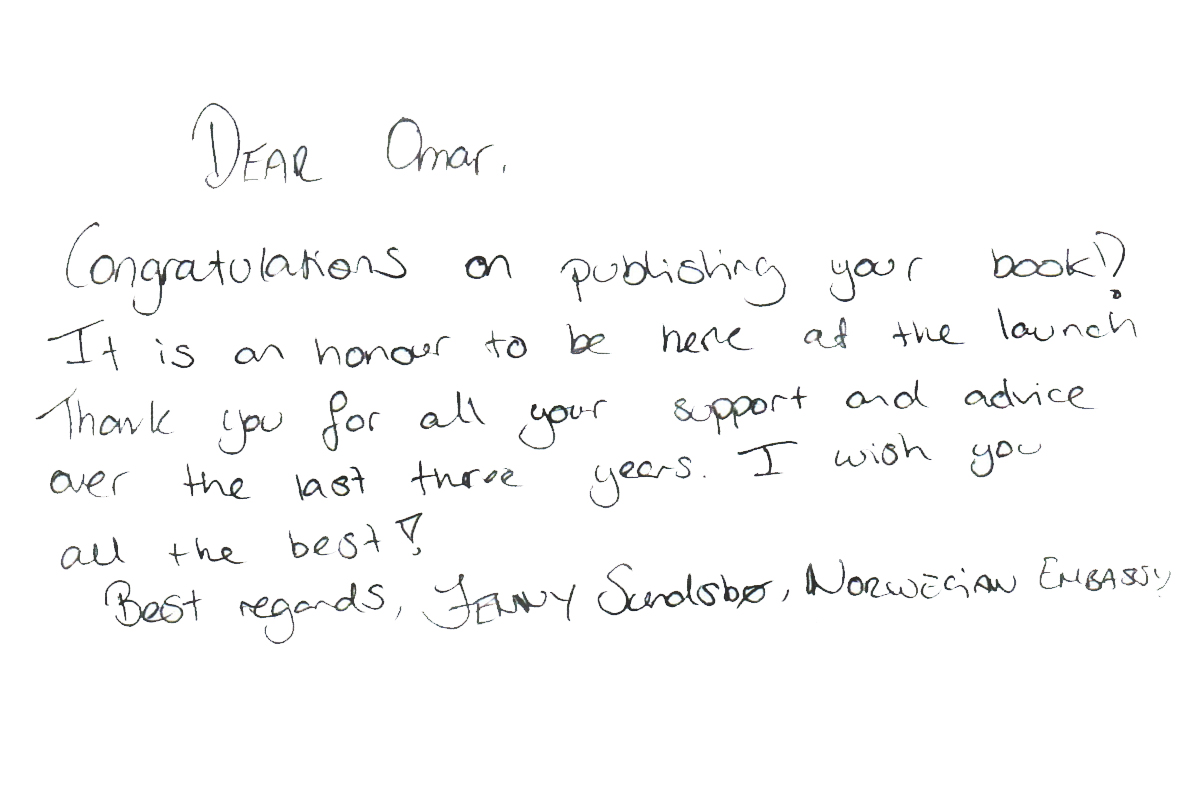 DEAR Omar,
Congratulations on publishing your book!
It is an honour to be here at the launch
Thank you for all your support and advice
over the last three years. I wish you
all the best!
Best regards, JENNY Sundsbø, NORWEGIAN EMBASSY